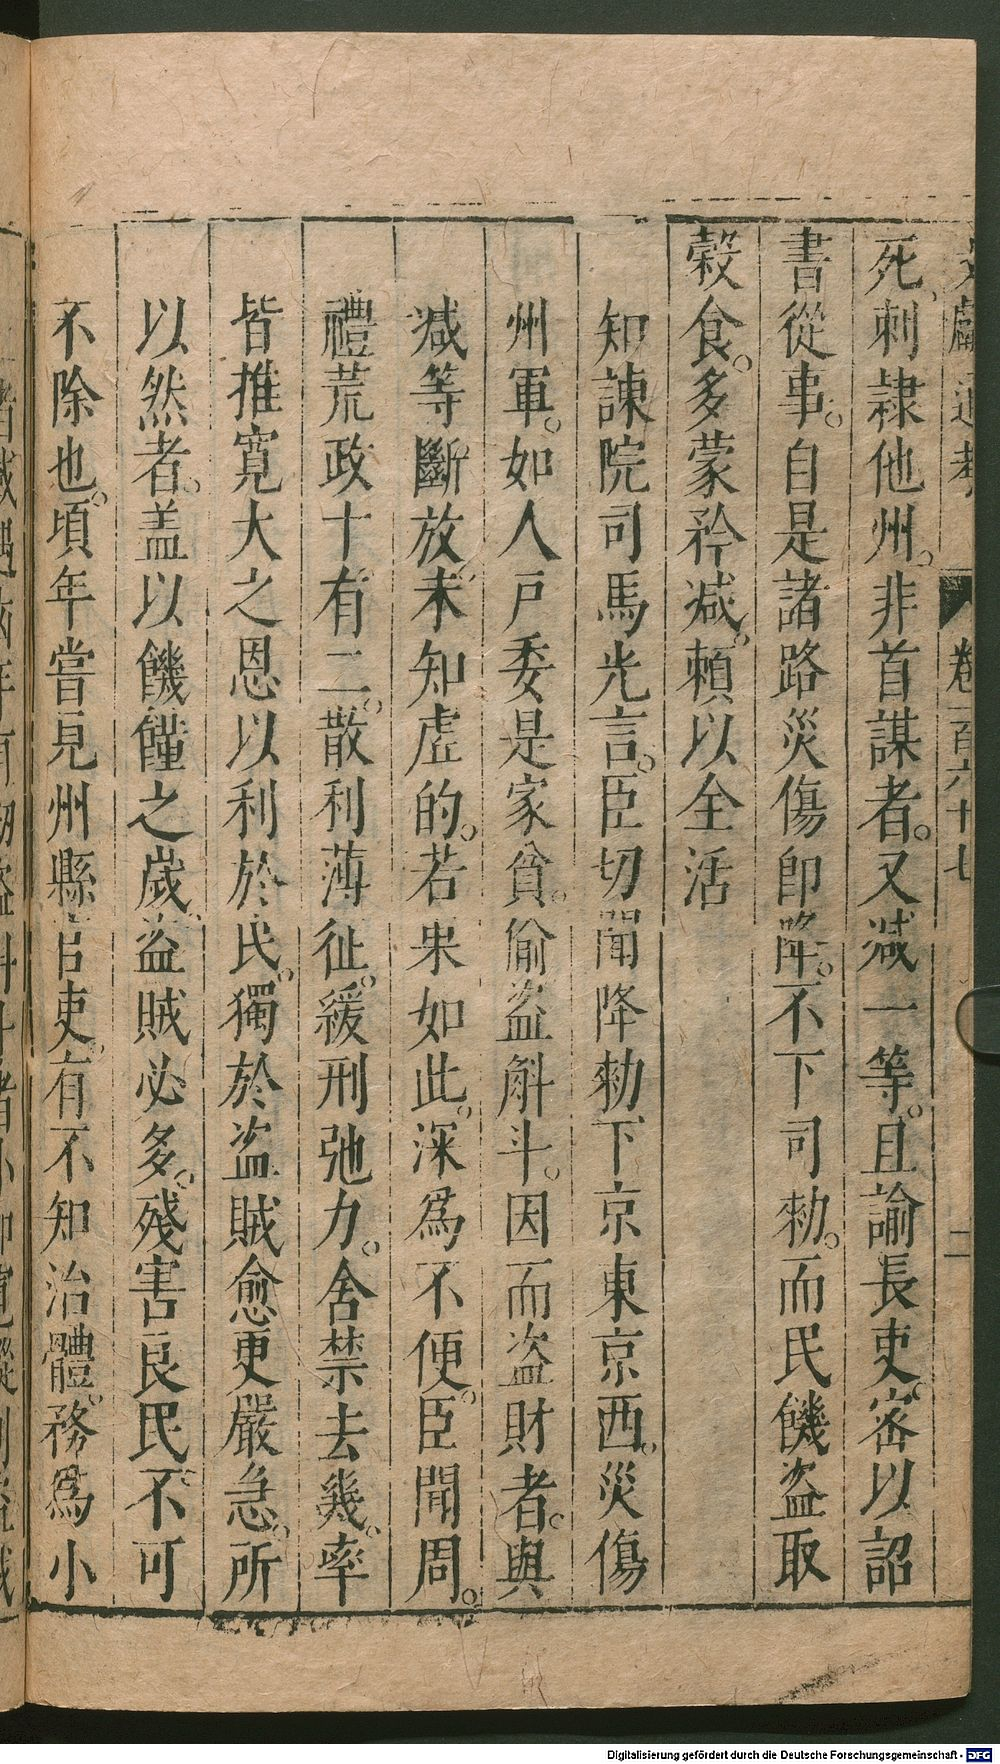 文獻通考 卷一百六十七 二
死刺隷他州。非首謀者。又减一等。且諭長吏。密以詔
書從事。自是諸路災傷即降。不下司勑。而民饑盗取
穀食。多蒙矜减。賴以全活
知諫院司馬光言。臣切聞降勑下京東京西。災傷
州軍。如人戸委是家貧。偷盗斛斗。因而盗財者。與
减等斷放。未知虚的。若果如此。深爲不便。臣聞周。
禮荒政十有二。散利薄征。緩刑弛力。舍禁去幾。率
皆推寬大之恩以利於民。獨於盗賊愈更嚴急。所
以然者。盖以饑饉之歲。盗賊必多。殘害良民。不可
不除也。頃年嘗見州縣官吏。有不知治體。務爲小
Digitalisierung gefördert durch die Deutsche Forschungsgemeinschaft - DFG